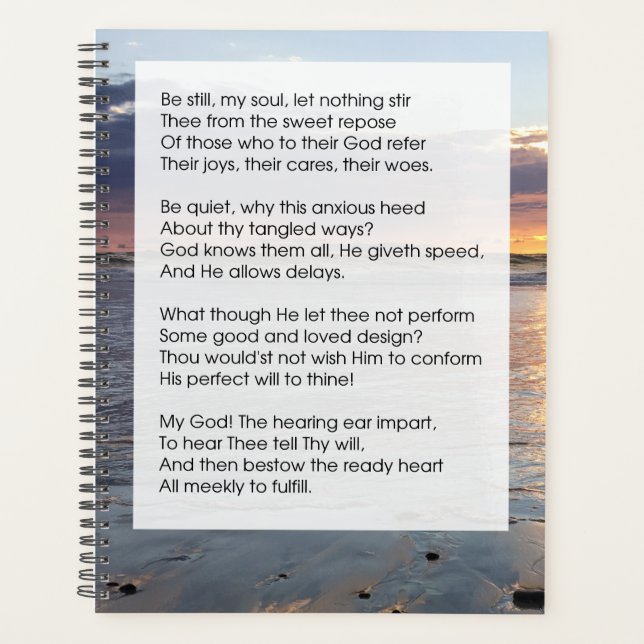 Be still, my soul, let nothing stir
Thee from the sweet repose
Of those who to their God refer
Their joys, their cares, their woes.
Be quiet, why this anxious heed
About thy tangled ways?
God knows them all, He giveth speed,
And He allows delays.
What though He let thee not perform
Some good and loved design?
Thou would'st not wish Him to conform
His perfect will to thine!
My God! The hearing ear impart,
To hear Thee tell Thy will,
And then bestow the ready heart
All meekly to fulfill.